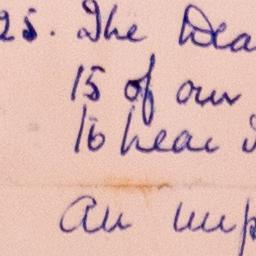 25. The Wea
15 of our
16 hear
An imp